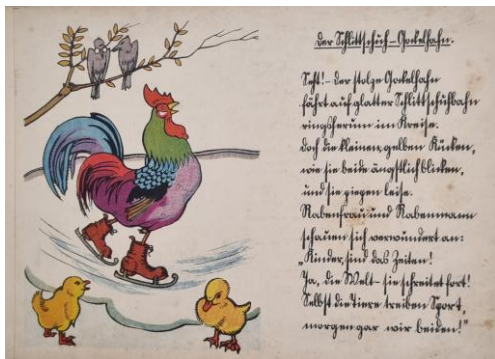 Der Schlittschuh-Gockelhahn.
Seht! - der stolze Gockelhahn
fährt auf glatter Schlittschuhbahn
ringsherum im Kreise.
Doch die kleinen, gelben Kücken,
wie sie beide ängstlich blicken,
und sie piepen leise.
Rabenfrau und Rabenmann
schauen sich verwundert an:
„Kinder, sind das Zeiten!
Ja, die Welt - sie schreitet fort!
Selbst die Tiere treiben Sport,
morgen gar wir beiden!"